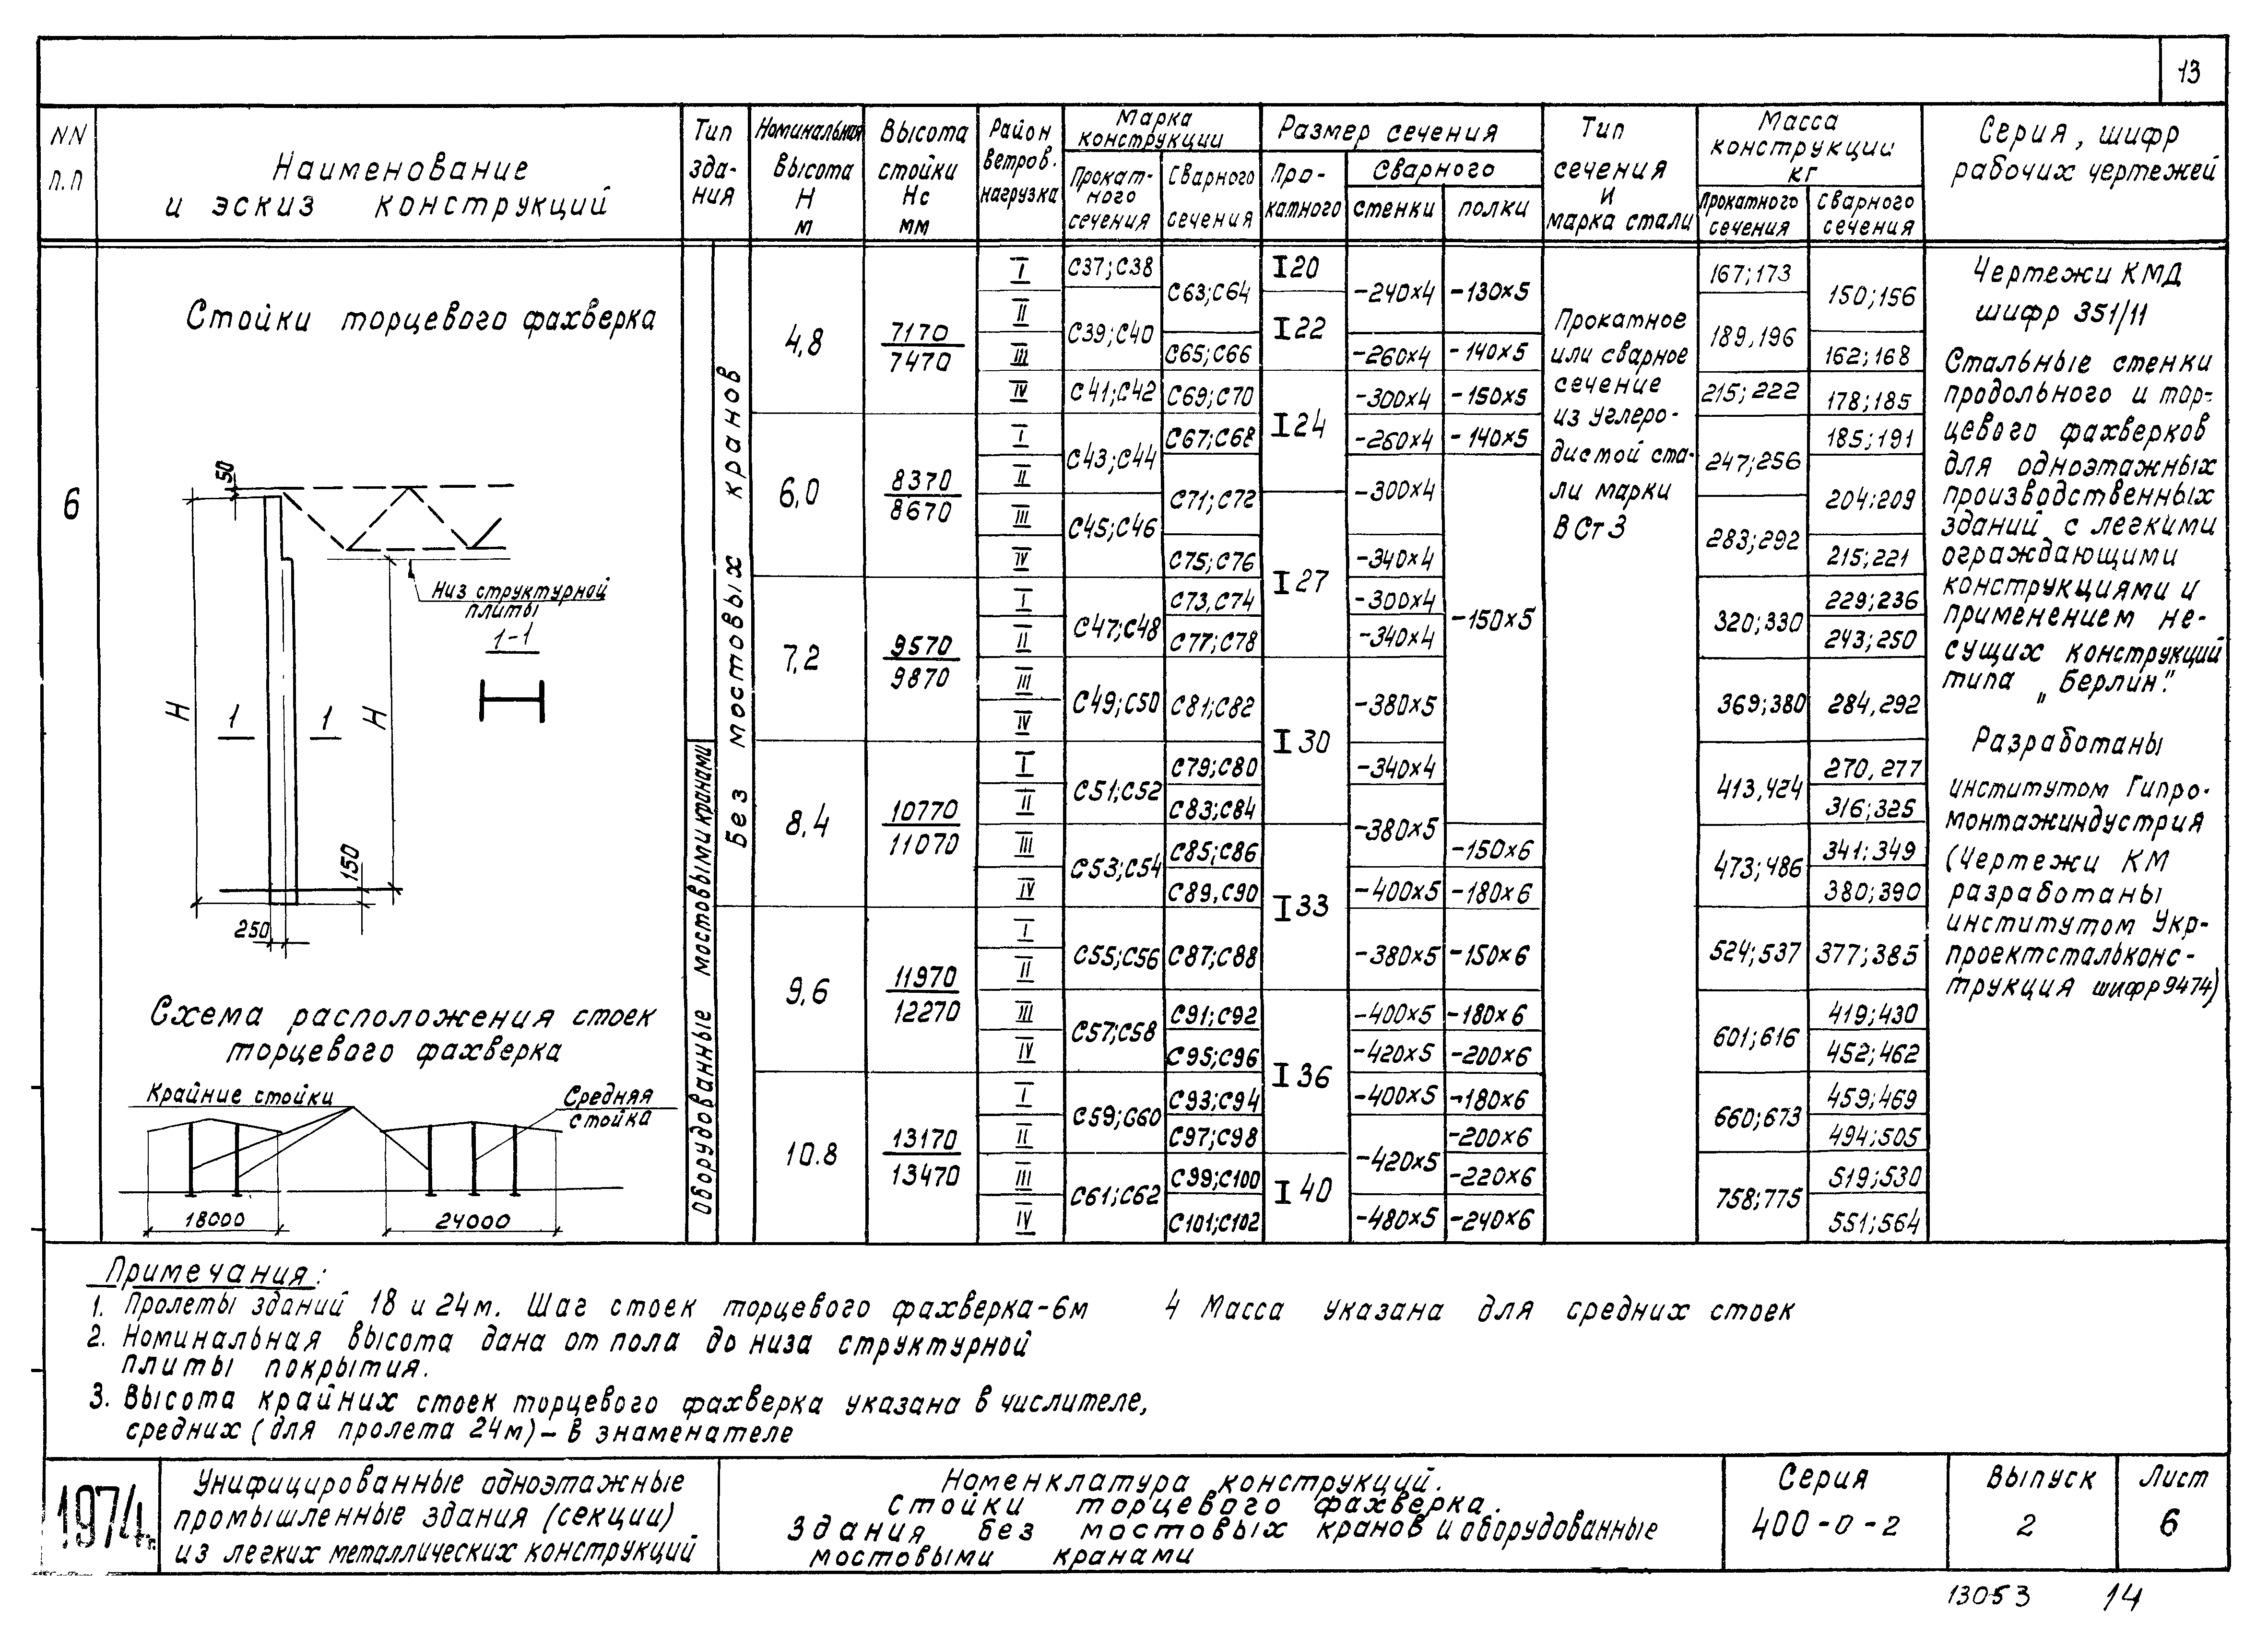 13
NN п.п
Наименование и эскиз конструкций
Тип здания
Номинальная высота Н м
Высота стойки Нс мм
Район ветров. нагрузка
Марка конструкции
Прокатного сечения
Сварного сечения
Размер сечения
Прокатного
Сварного
стенки
полки
Тип сечения и марка стали
Масса конструкции кг
Прокатного сечения
Сварного сечения
Серия, шифр рабочих чертежей
6
Стойки торцевого фахверка
50
Низ структурной
плиты
1-1
Н
1
1
Н
150
250
Схема расположения стоек
торцевого фахверка
Крайние стойки
Средняя
стойка
18000
24000
Без мостовых кранов
Оборудованные мостовыми кранами
4,8
7170
7470
I
II
III
IV
6,0
8370
8670
I
II
III
IV
7,2
9570
9870
I
II
III
IV
8,4
10770
11070
I
II
III
IV
9,6
11970
12270
I
II
III
IV
10.8
13170
13470
I
II
III
IV
С37;С38
С39;С40
С41;С42
С43;С44
С45;С46
С47;С48
С49;С50
С51;С52
С53;С54
С55;С56
С57;С58
С59;С60
С61;С62
С63;С64
С65;С66
С69;С70
С67;С68
С71;С72
С75;С76
С73,С74
С77;С78
С81;С82
С79;С80
С83;С84
С85;С86
С89,С90
С87;С88
С91;С92
С95;С96
С93;С94
С97;С98
С99;С100
С101;С102
I20
I22
I24
I27
I30
I33
I36
I40
-240×4
-260×4
-300×4
-260×4
-300×4
-340×4
-300×4
-340×4
-380×5
-340×4
-380×5
-400×5
-380×5
-400×5
-420×5
-400×5
-420×5
-480×5
-130×5
-140×5
-150×5
-140×5
-150×5
-150×6
-180×6
-150×6
-180×6
-200×6
-180×6
-200×6
-220×6
-240×6
Прокатное
или сварное
сечение
из углеро-
дистой ста-
ли марки
ВСт3
167;173
189,196
215;222
247;256
283;292
320;330
369;380
413,424
473;486
524;537
601;616
660;673
758;775
150;156
162;168
178;185
185;191
204:209
215;221
229;236
243;250
284,292
270,277
316;325
341:349
380;390
377;385
419;430
452;462
459;469
494;505
519;530
551;564
Чертежи КМД
шифр 351/11
Стальные стенки
продольного и тор-
цевого фахверков
для одноэтажных
производственных
зданий с легкими
ограждающими
конструкциями и
применением не-
сущих конструкций
типа „Берлин".
Разработаны
институтом Гипро-
монтажиндустрия
(Чертежи КМ
разработаны
институтом Укр-
проектстальконс-
трукция шифр 9474)
Примечания:
1. Пролеты зданий 18 и 24м. Шаг стоек торцевого фахверка-6м
2. Номинальная высота дана от пола до низа структурной
плиты покрытия.
3. Высота крайних стоек торцевого фахверка указана в числителе,
средних (для пролета 24м) – в знаменателе
4 Масса указана для средних стоек
1974г.
Унифицированные одноэтажные
промышленные здания (секции)
из легких металлических конструкций
Номенклатура конструкций.
Стойки торцевого фахверка.
Здания без мостовых кранов и оборудованные
мостовыми кранами
Серия
400-0-2
Выпуск
2
Лист
6
13053 14